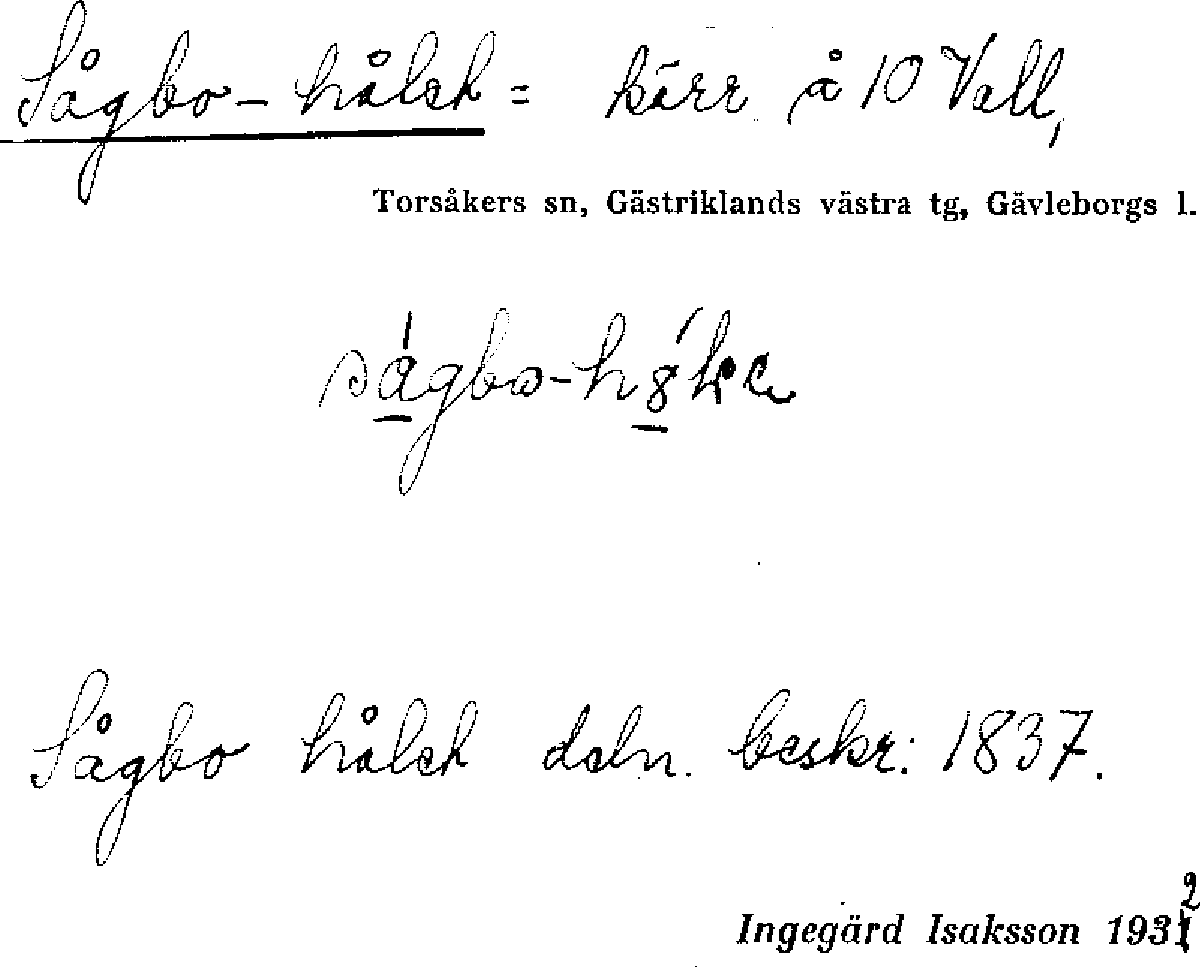 Sågbo-hålet = kärr å 10 Vall,
Torsåkers sn, Gästriklands västra tg, Gävleborgs l.
Sågbo hålet deln. beskr: 1837.
Ingegärd Isaksson 1932